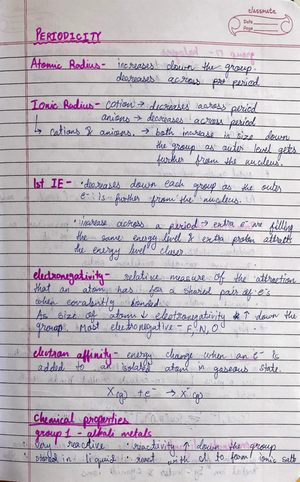 classmate
Date
Page
PERIODICITY
Atomic Radius - increases down the group.
decreases across per period
Ionic Radius - cation → decreases across period
anions → decreases across period
↳ cations & anions. → both increase in size down
the group as outer level gets
further from the nucleus.
1st IE - • decreases down each group as the outer
e⁻ is further from the nucleus.
• increase across a period → extra e⁻ are filling
the same energy level & extra proton attracts
the energy level closer
electronegativity - relative measure of the attraction
that an atom has for a shared pair of e⁻s
when covalently bonded.
As size of atom ↓ electronegativity ↑ down the
group. Most electronegative - F, N, O
electron affinity - energy change when an e⁻ is
added to an isolated atom in gaseous state.
X(g) + e⁻ → X⁻(g)
Chemical properties
group 1 - alkali metals
• Very reactive • reactivity ↑ down the group
• stored in liquid • react with cl to form ionic salts